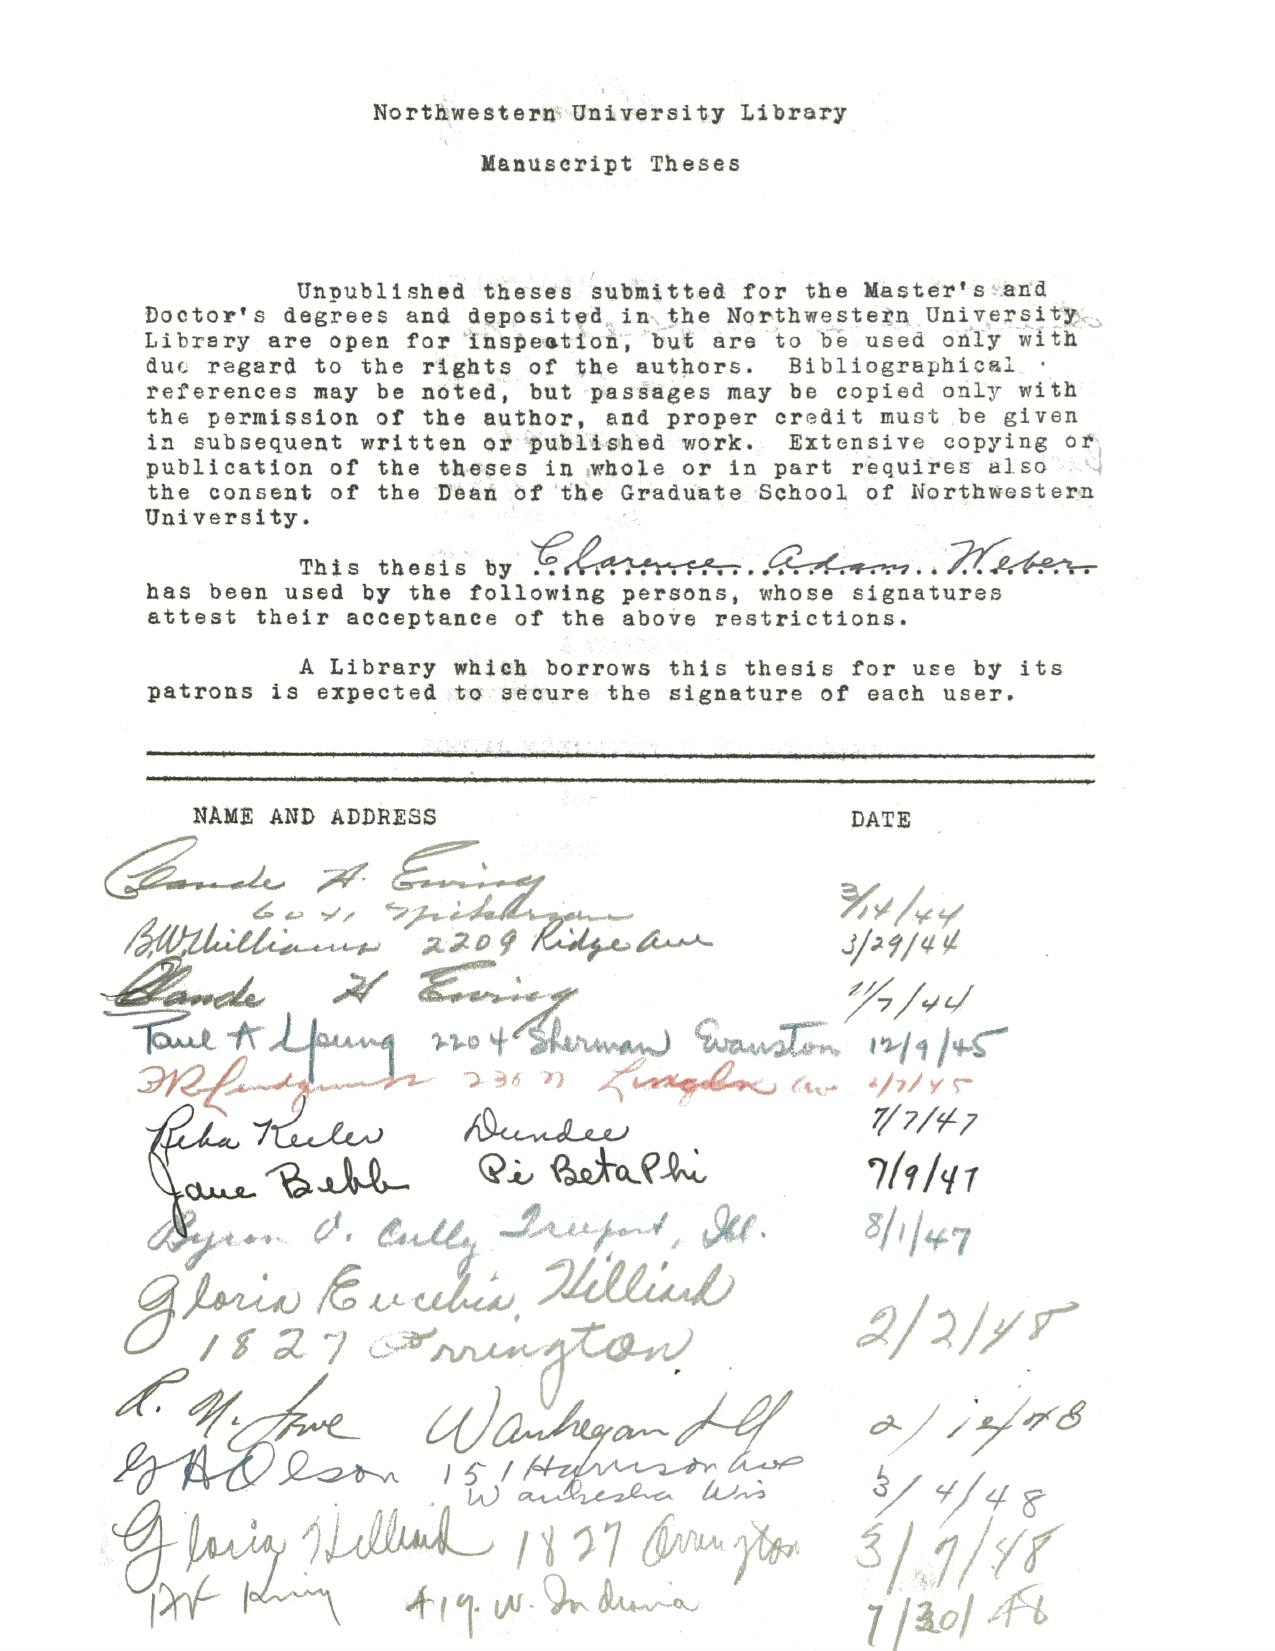 Northwestern University Library
Manuscript Theses
Unpublished theses submitted for the Master's and
Doctor's degrees and deposited in the Northwestern University
Library are open for inspection, but are to be used only with
due regard to the rights of the authors. Bibliographical
references may be noted, but passages may be copied only with
the permission of the author, and proper credit must be given
in subsequent written or published work. Extensive copying or
publication of the theses in whole or in part requires also
the consent of the Dean of the Graduate School of Northwestern
University.
This thesis by Clarence Adam Weber
has been used by the following persons, whose signatures
attest their acceptance of the above restrictions.
A Library which borrows this thesis for use by its
patrons is expected to secure the signature of each user.
NAME AND ADDRESS DATE
Claude H. Ewing
3/14/44
B.W. Williams 2209 Ridge Ave 3/29/44
Claude H Ewing 11/7/44
Paul A Young 2204 Sherman Evanston 12/9/45
Lincoln Ave
Reba Keeler Dundee 7/7/47
Jane Bebb Pi Beta Phi 7/9/47
Byron V. Cully Freeport, Ill. 8/1/47
Gloria Eucebia Hilliard
1827 Orrington 2/2/48
R. N. Lowe Waukegan Ill
G A Olson 151 Harrison Ave
Waukesha Wis 3/4/48
Gloria Hilliard 1827 Orrington 3/7/48
King 419 W. Indiana 7/30/48